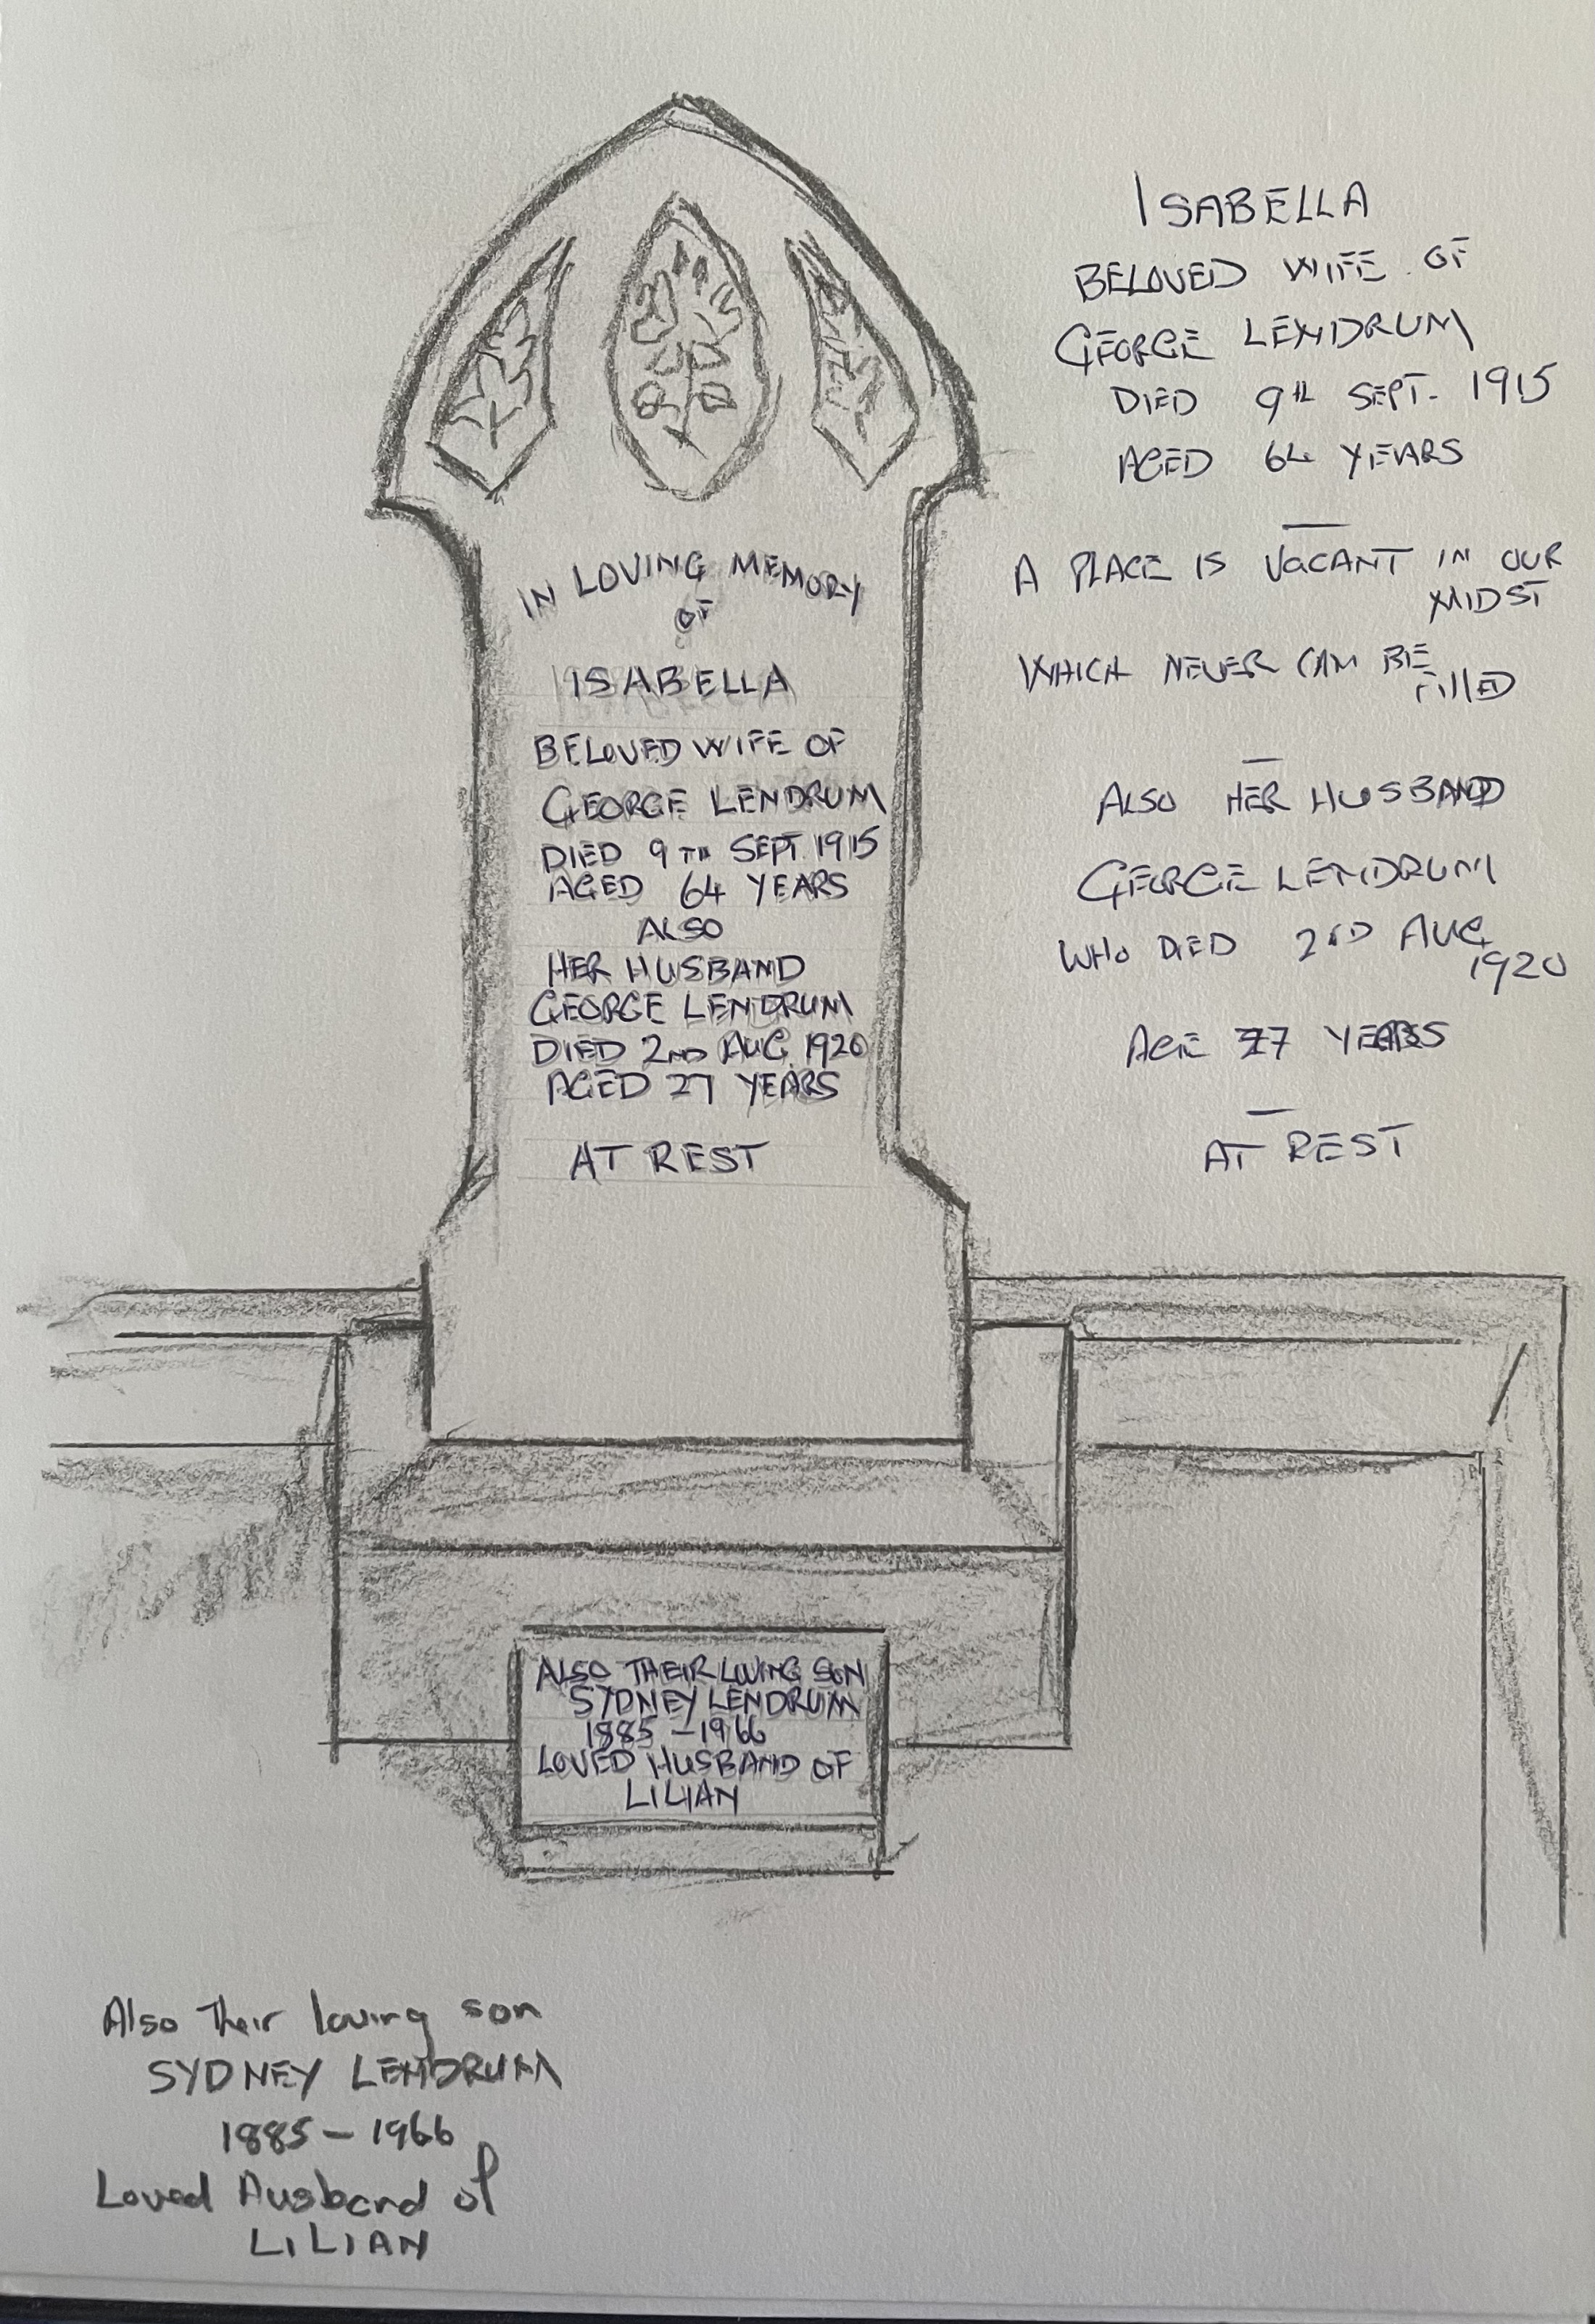 IN LOVING MEMORY
OF
ISABELLA
BELOVED WIFE OF
GEORGE LENDRUM
DIED 9TH SEPT. 1915
AGED 64 YEARS
ALSO
HER HUSBAND
GEORGE LENDRUM
DIED 2ND AUG. 1920
AGED 27 YEARS
AT REST
ALSO THEIR LOVING SON
SYDNEY LENDRUM
1885 - 1966
LOVED HUSBAND OF
LILIAN
ISABELLA
BELOVED WIFE OF
GEORGE LENDRUM
DIED 9TH SEPT. 1915
AGED 64 YEARS
A PLACE IS VACANT IN OUR
MIDST
WHICH NEVER CAN BE
FILLED
ALSO HER HUSBAND
GEORGE LENDRUM
WHO DIED 2ND AUG.
1920
AGE 77 YEARS
AT REST
Also Their loving son
SYDNEY LENDRUM
1885 - 1966
Loved Husband of
LILIAN